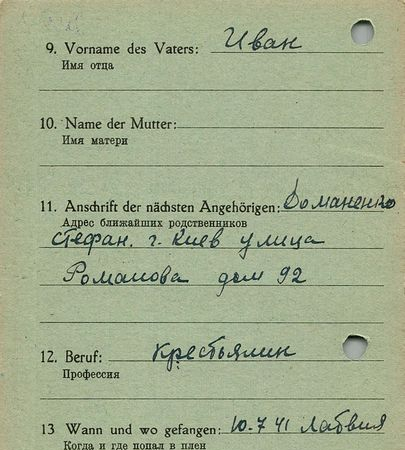 9. Vorname des Vaters: Иван
Имя отца
10. Name der Mutter:
Имя матери
11. Anschrift der nächsten Angehörigen: Доманенко
Адрес ближайших родственников
Стефан. г. Киев улица
Романова дом 92
12. Beruf: крестьянин
Профессия
13 Wann und wo gefangen: 10.7 41 Латвия
Когда и где попал в плен